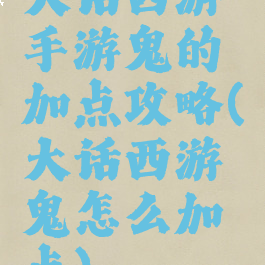 大话西游
手游鬼的
加点攻略(
大话西游
鬼怎么加
点)